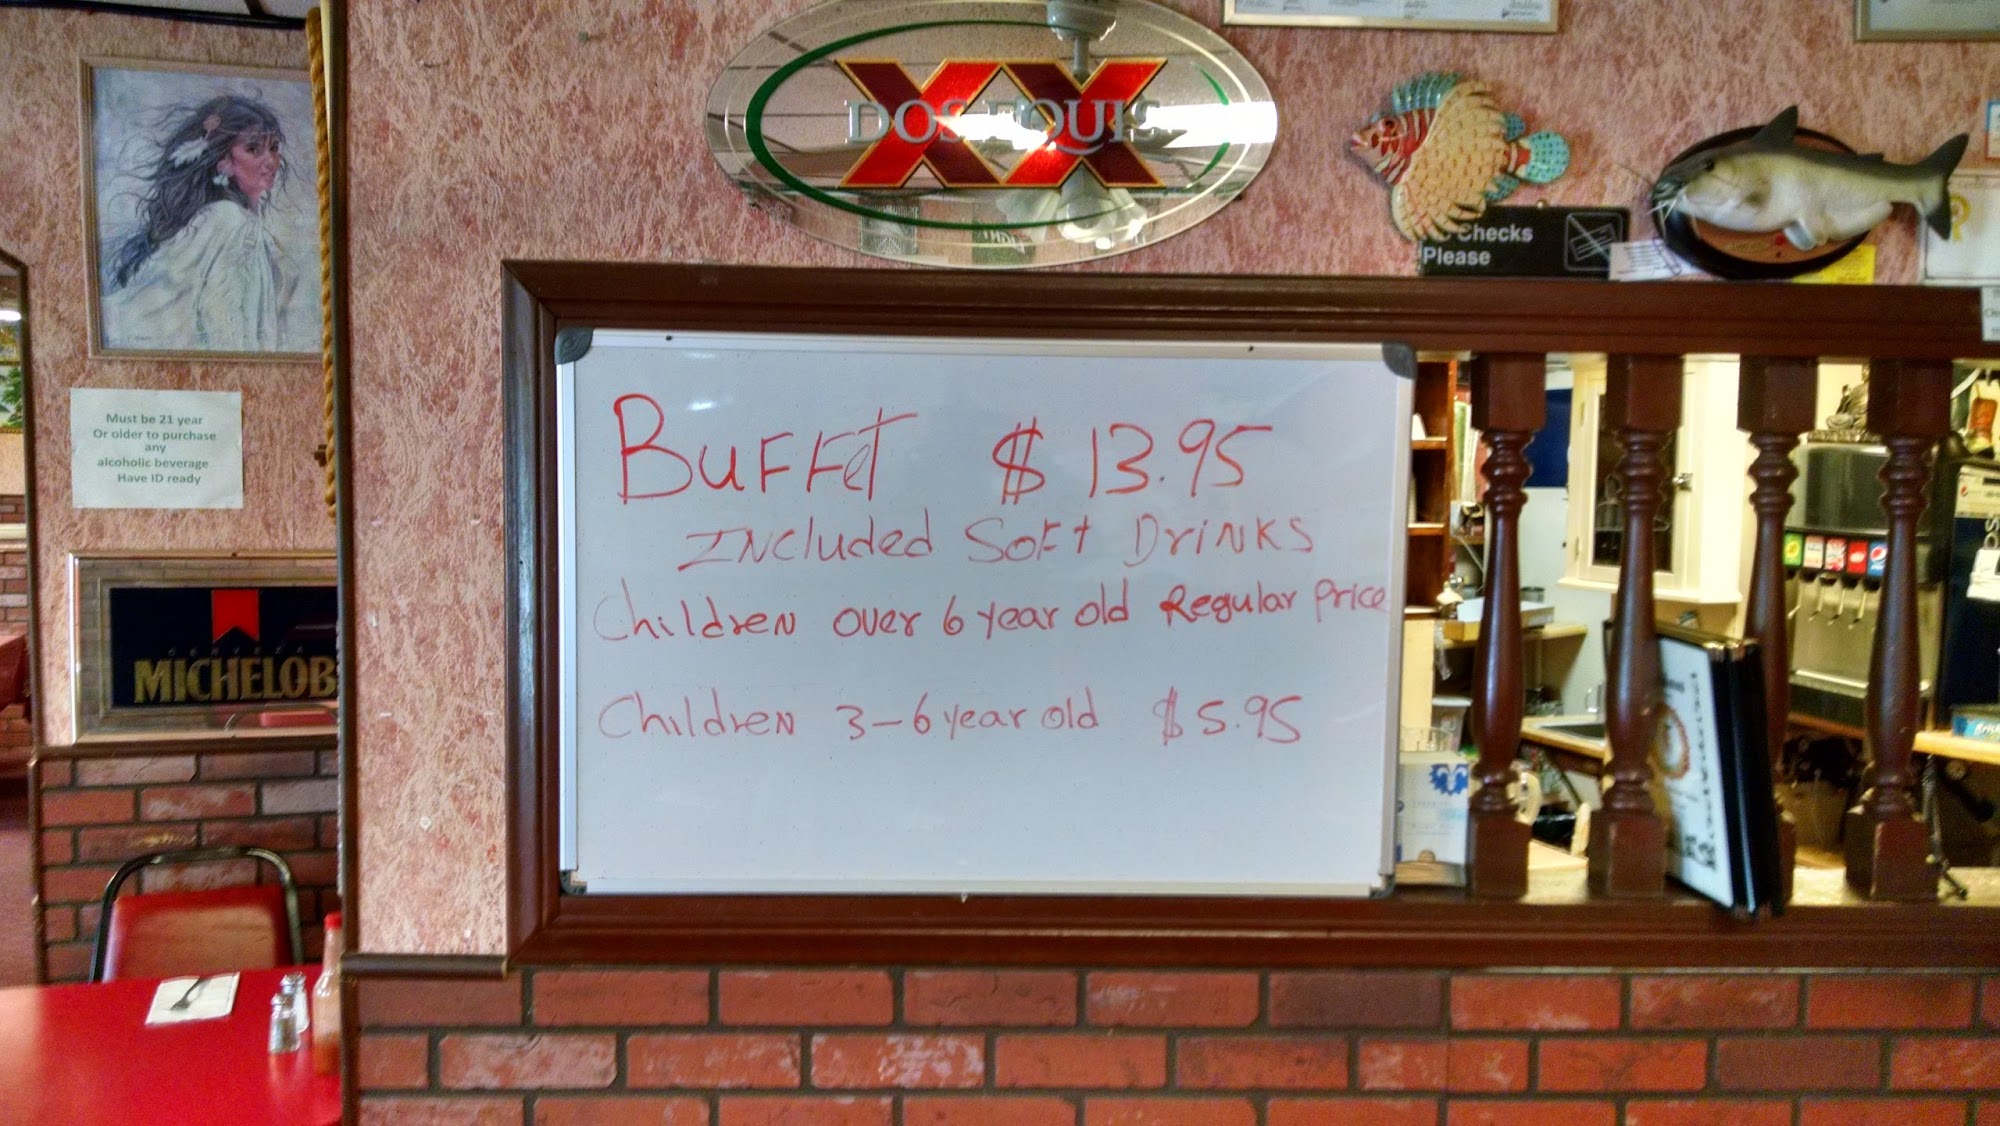 DOS EQUIS
XX
Checks
Please
Must be 21 year
Or older to purchase
any
alcoholic beverage
Have ID ready
CERVEZA
MICHELOB
BUFFet $ 13.95
INCluded SOFt DriNKS
ChildreN over 6 year old Regular Price
ChildreN 3-6 year old $5.95